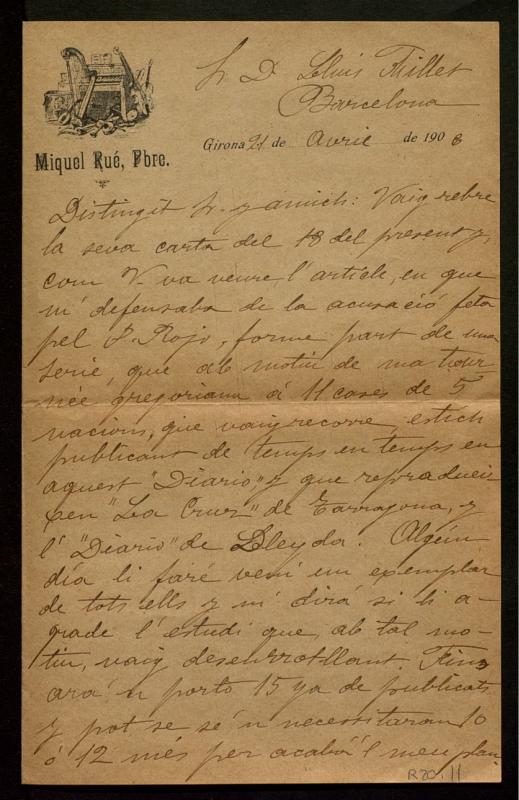 Sr D. Lluis Millet
Barcelona
Girona 21 de Avril de 1908
Miquel Rué, Pbre.
Distingit Sr. y amich: Vaig rebre
la seva carta del 18 del present y,
com V. va veure, l'article, en que
m' defensaba de la acusació feta
pel P. Rojo, forme part de una
serie, que ab motiu de ma tour
née gregoriana á 11 cases de 5
nacions, que vaig recorre, estich
publicant de temps en temps en
aquest "Diario", y que reprodueix
en "La Cruz" de Tarragona, y
l' "Diario" de Lleyda. Algún
día li faré vení un exemplar
de tots ells y m' dirá si li a-
grade l' estudi que, ab tal mo-
tiu, vaig desenrrotllant. Fins
ara 'n porto 15 ya de publicats
y pot se se 'n necessitaran 10
ó 12 més per acabá 'l meu plan.
R20.11